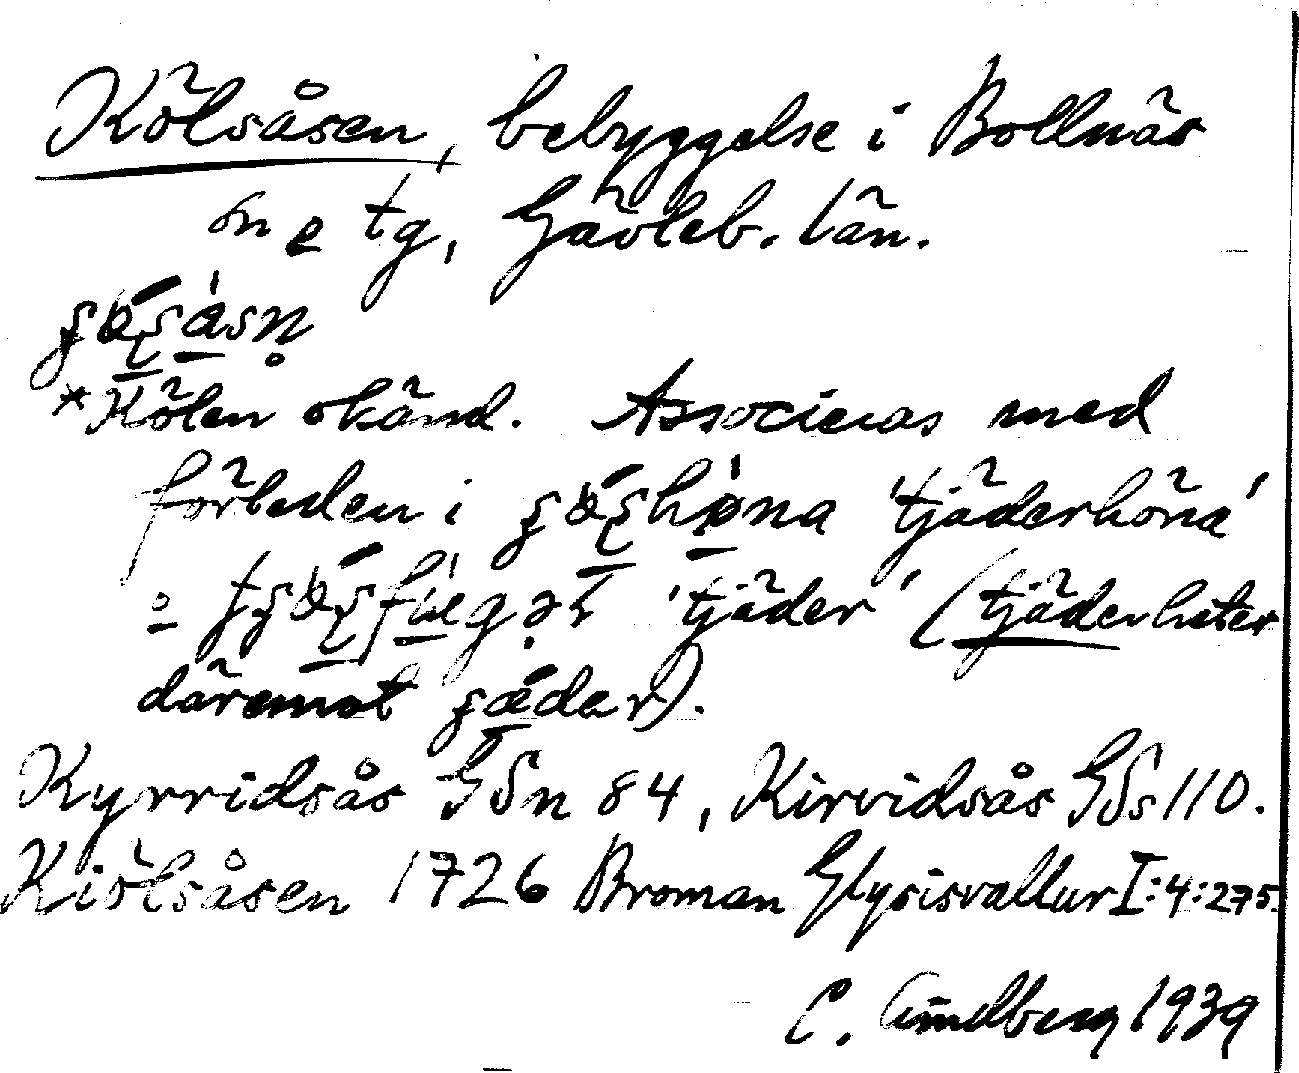 Kölsåsen, bebyggelse i Bollnäs
sn o tg, Gävleb. län.
*Kölen okänd. Associeras med
förleden i 'tjäderhöna'
o 'tjäder' (tjäder heter
däremot).
Kyrridsås GSn 84, Kirvidsås GSs 110.
Kiölsåsen 1726 Broman Glysisvallur I:4:275.
C. Lindberg 1939